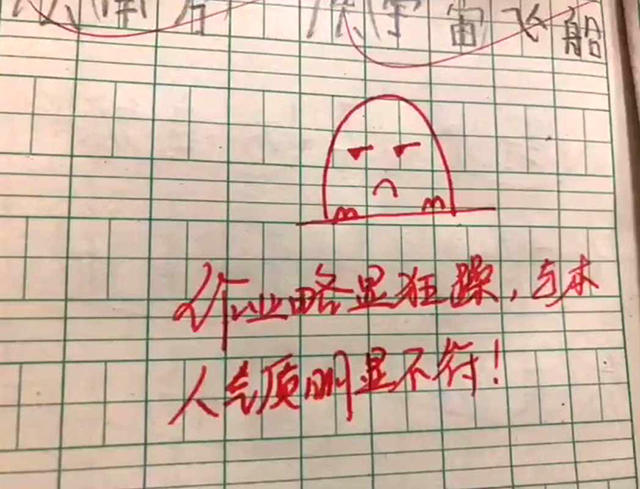 宇宙飞船
作业略显狂躁，与本
人气质明显不符！